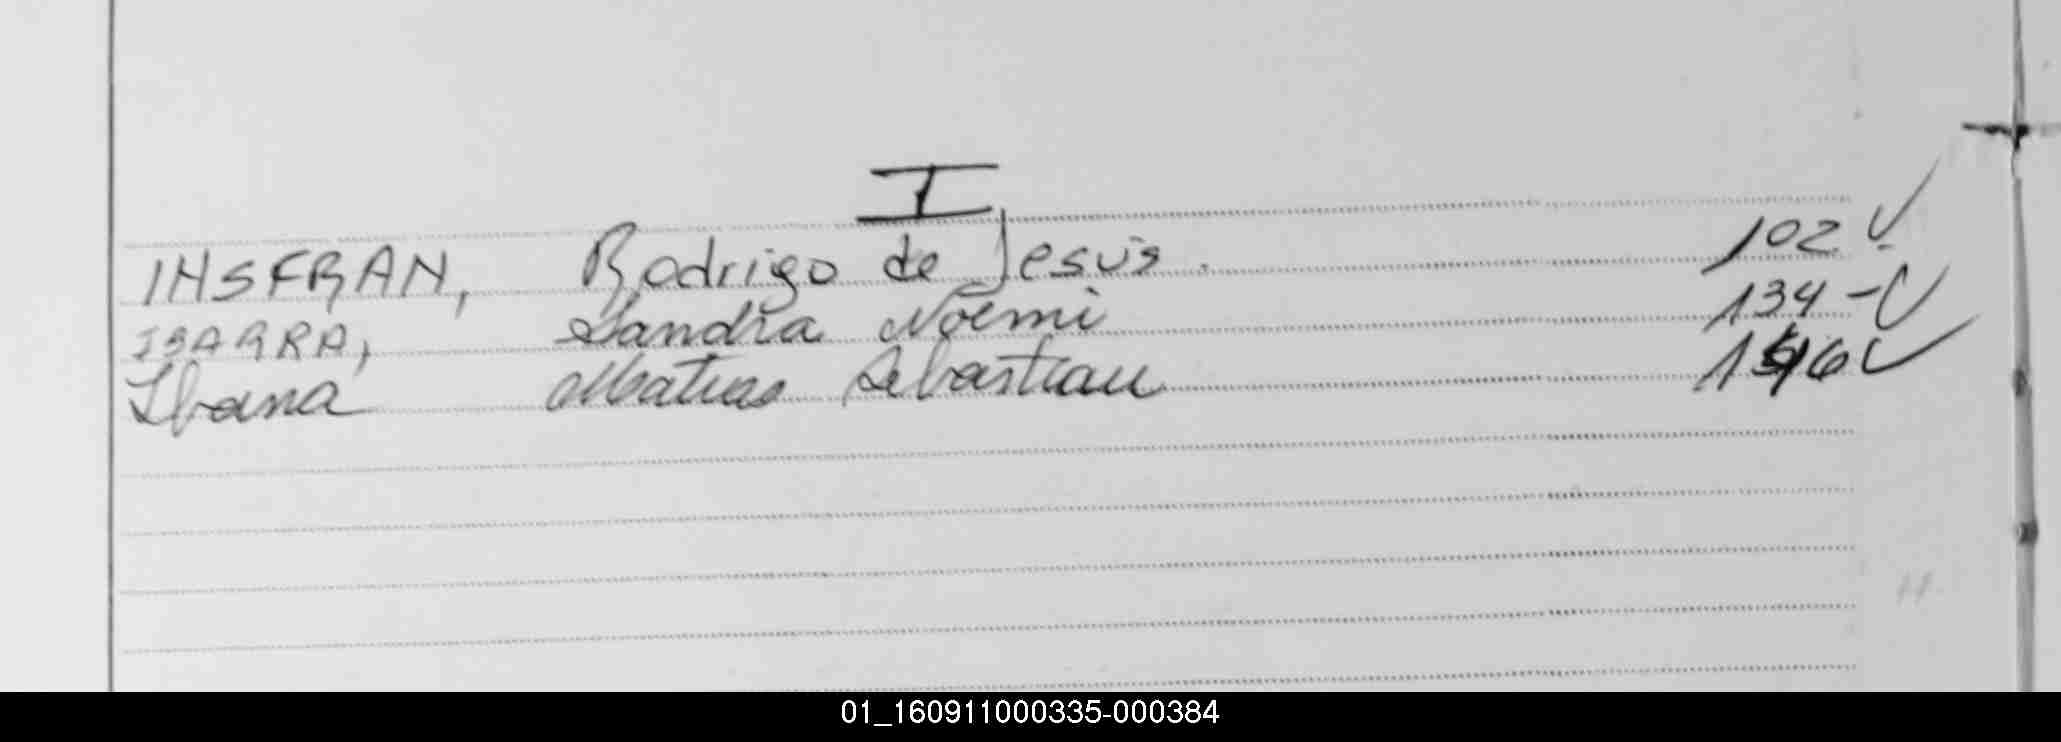 I
INSFRAN, Rodrigo de Jesús. 102
IBARRA, Sandra Noemi 134 -
Ibana Matias Sebastian
01_160911000335-000384